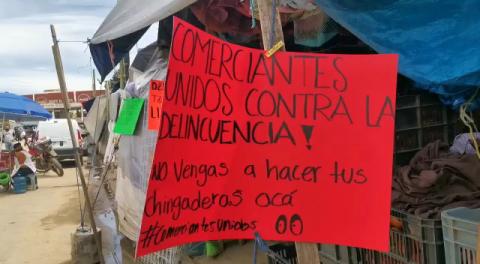 COMERCIANTES
UNIDOS CONTRA LA
DELINCUENCIA!
NO VENGAS A hacer tus
chingaderas acá
#ComerciantesUnidos